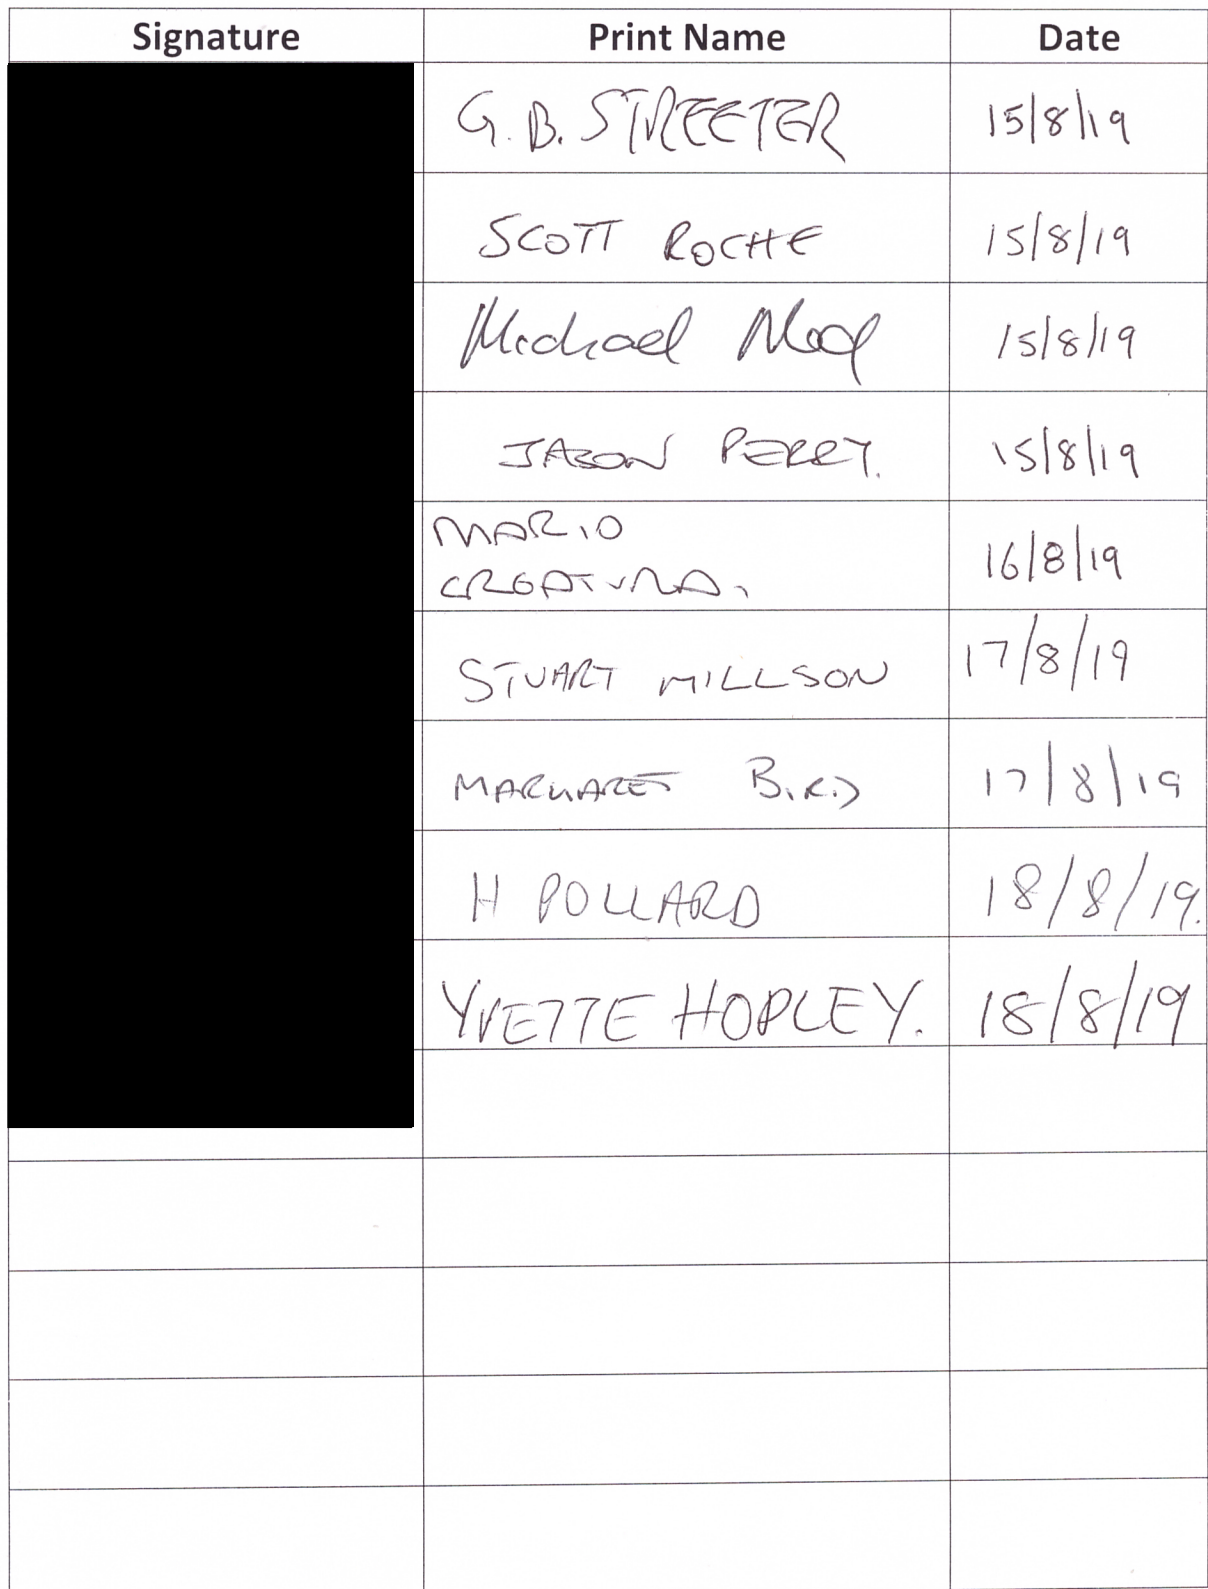 Signature Print Name Date
G. B. STREETER 15/8/19
SCOTT ROCHE 15/8/19
Michael 15/8/19
JASON PERRY. 15/8/19
MARIO
CREATURA. 16/8/19
STUART MILLSON 17/8/19
MARGARET BIRD 17/8/19
H POLLARD 18/8/19.
YVETTE HOPLEY. 18/8/19